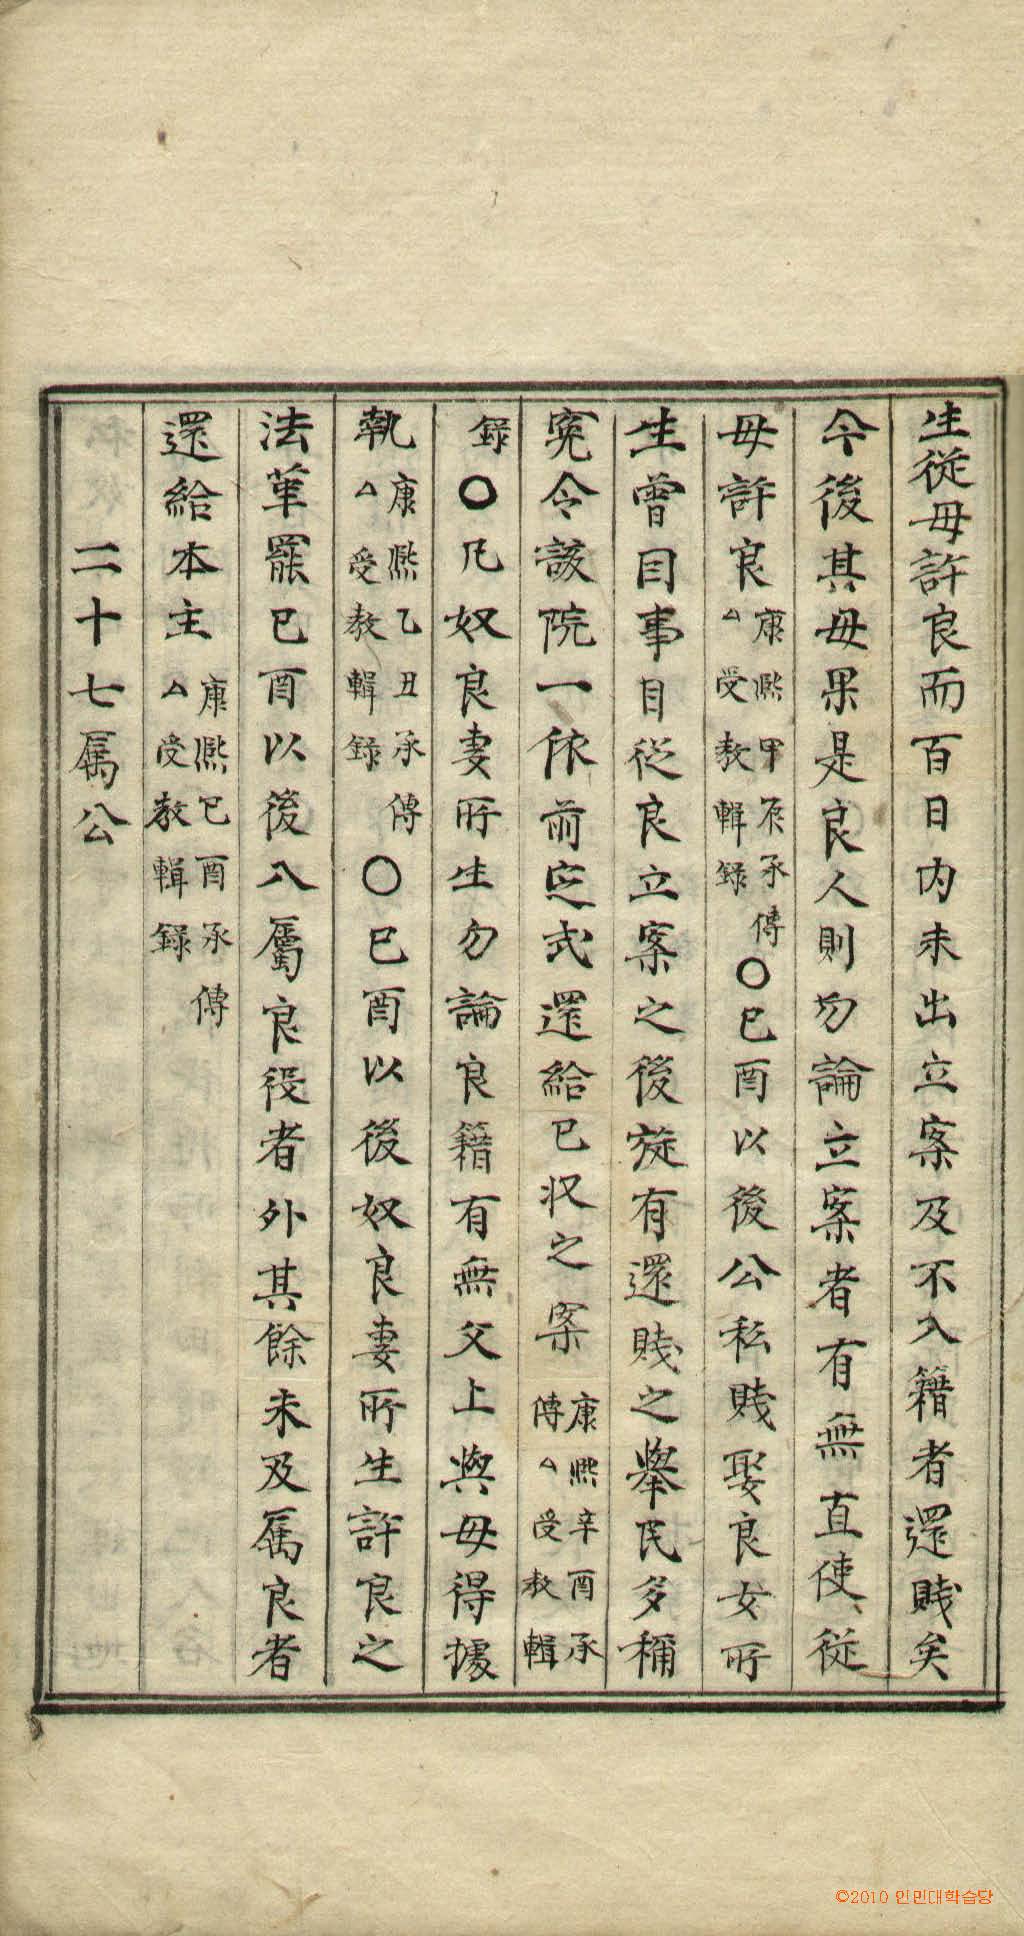 生從母許良而百日內未出立案及不入籍者還賤矣
今後其母果是良人則勿論立案者有無直使從
母許良康熙甲辰承傳△受教輯錄○己酉以後公私賤娶良女所
生曾因事目從良立案之後旋有還賤之擧民多稱
寃令該院一依前定式還給已收之案康熙辛酉承傳△受教輯
錄○凡奴良妻所生勿論良籍有無父上與母得據
執康熙乙丑承傳△受教輯錄○己酉以後奴良妻所生許良之
法革罷己酉以後入屬良役者外其餘未及属良者
還給本主康熙己酉承傳△受教輯錄
二十七属公
©2010 인민대학습당